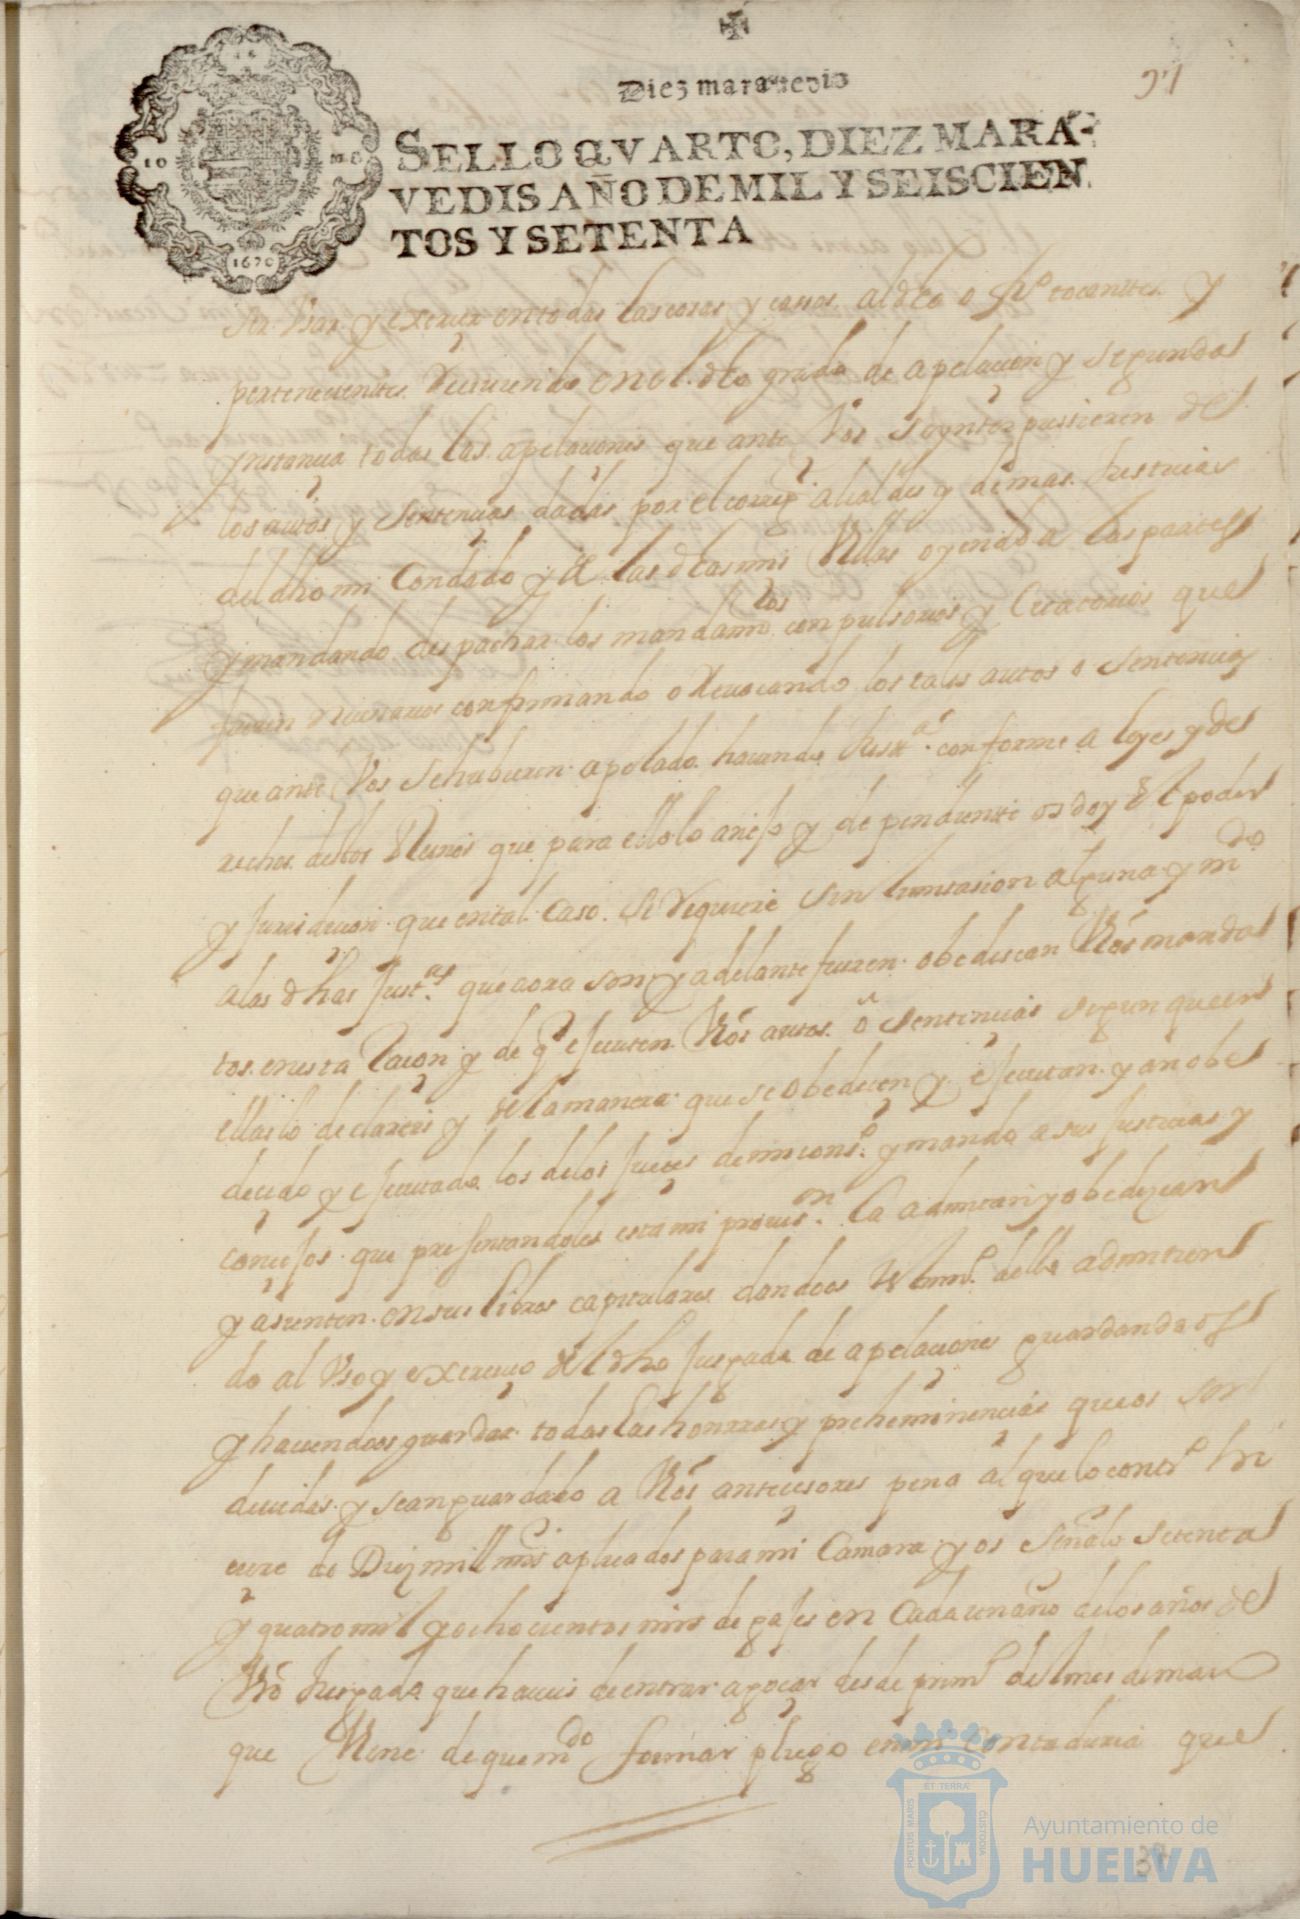 Diez marauedis
97
SELLO QVARTO, DIEZ MARA
VEDIS AÑO DE MIL Y SEISCIEN
TOS Y SETENTA
1670
Usar y exercer en todas las cosas y casos al dho o fho tocantes y
pertenecientes reciuiendo en el dho grado de apelacion y segunda
ynstancia todas las apelaciones que ante Vos se ynterpusieren de
los autos y sentencias dadas por el correxr alcaldes y demas Justicias
del dho mi Condado y de las dhas mis Villas oyendo a las partes
y mandando despachar los mandamtos conpulsorios y Citatorios que
fueren necesarios confirmando o Reuocando los tales autos o sentencias
que ante Vos se hubieren apelado haciendo Justa conforme a leyes y de
rechos destos Reinos que para ello lo anejo y dependiente os doy El poder
y Jurisdicion que en tal Caso se requiere sin limitasion alguna y mdo
a las dhas Justas que aora son y adelante fueren obedescan Vros manda
tos en esta Racon y de qe ejecuten Vros autos o sentencias segun que en
ellas lo declareis y de la manera que se obedecen y ejecutan y an obe
decido y ejecutado los de los Jueces de mi conso y mando a sus Justicias y
concejos que presentandoles esta mi prouison la admitan y obedezcan
y asienten en sus Libros capitulares dandoos testimo della admitien
do al Vso y exercicio del dho Jusgado de apelaciones guardandoos
y haciendoos guardar todas las honrras y preheminencias que os son
deuidas y se an guardado a Vros antecesores pena al que lo contro hi
ciere de Diez mill mrs aplicados para mi Camara y os señalo setenta
y quatro mil y ochocientos mrs de gajes en Cada un año de los años de
Vro Jusgado que haueis de entrar a gocar desde primo del mes de mar
que Viene de que mdo formar pliego en mi Contaduria que
ET TERRÆ
PORTUS MARIS
CUSTODIA
Ayuntamiento de
HUELVA